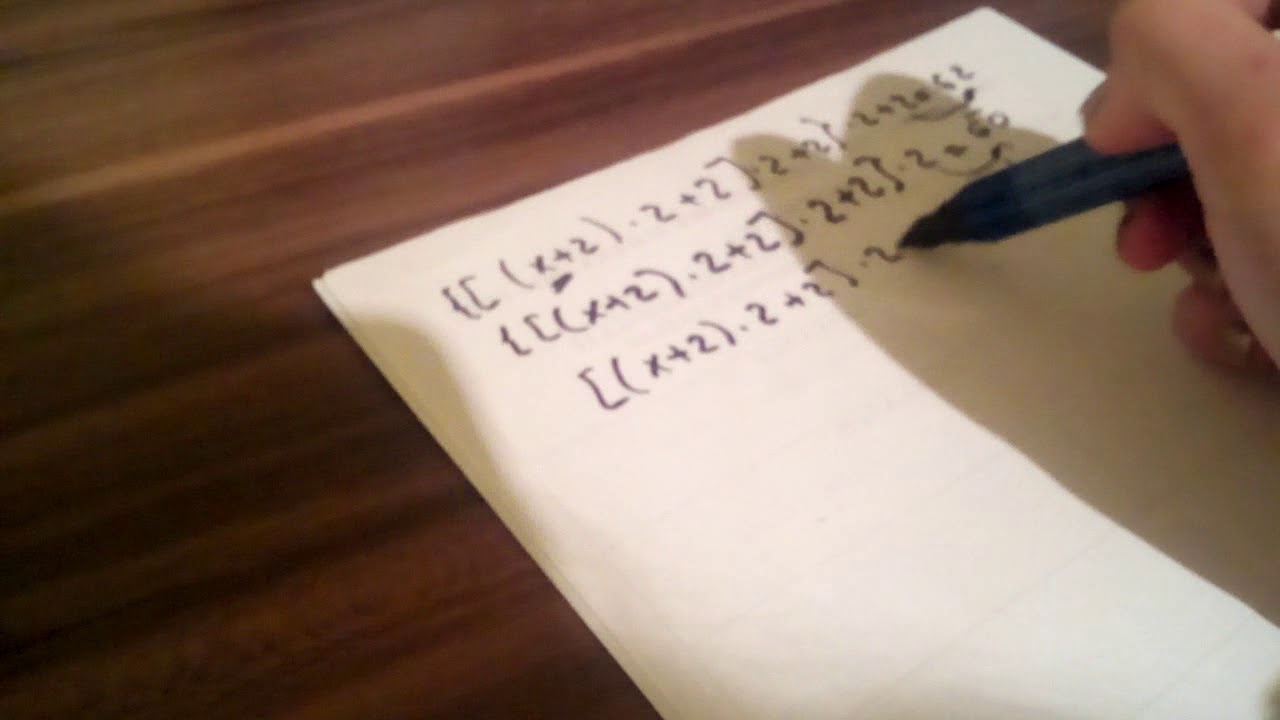 {[(x+2).2+2].2+2}.2+2=62
{[(x+2).2+2].2+2}.2=60
[(x+2).2+2].2